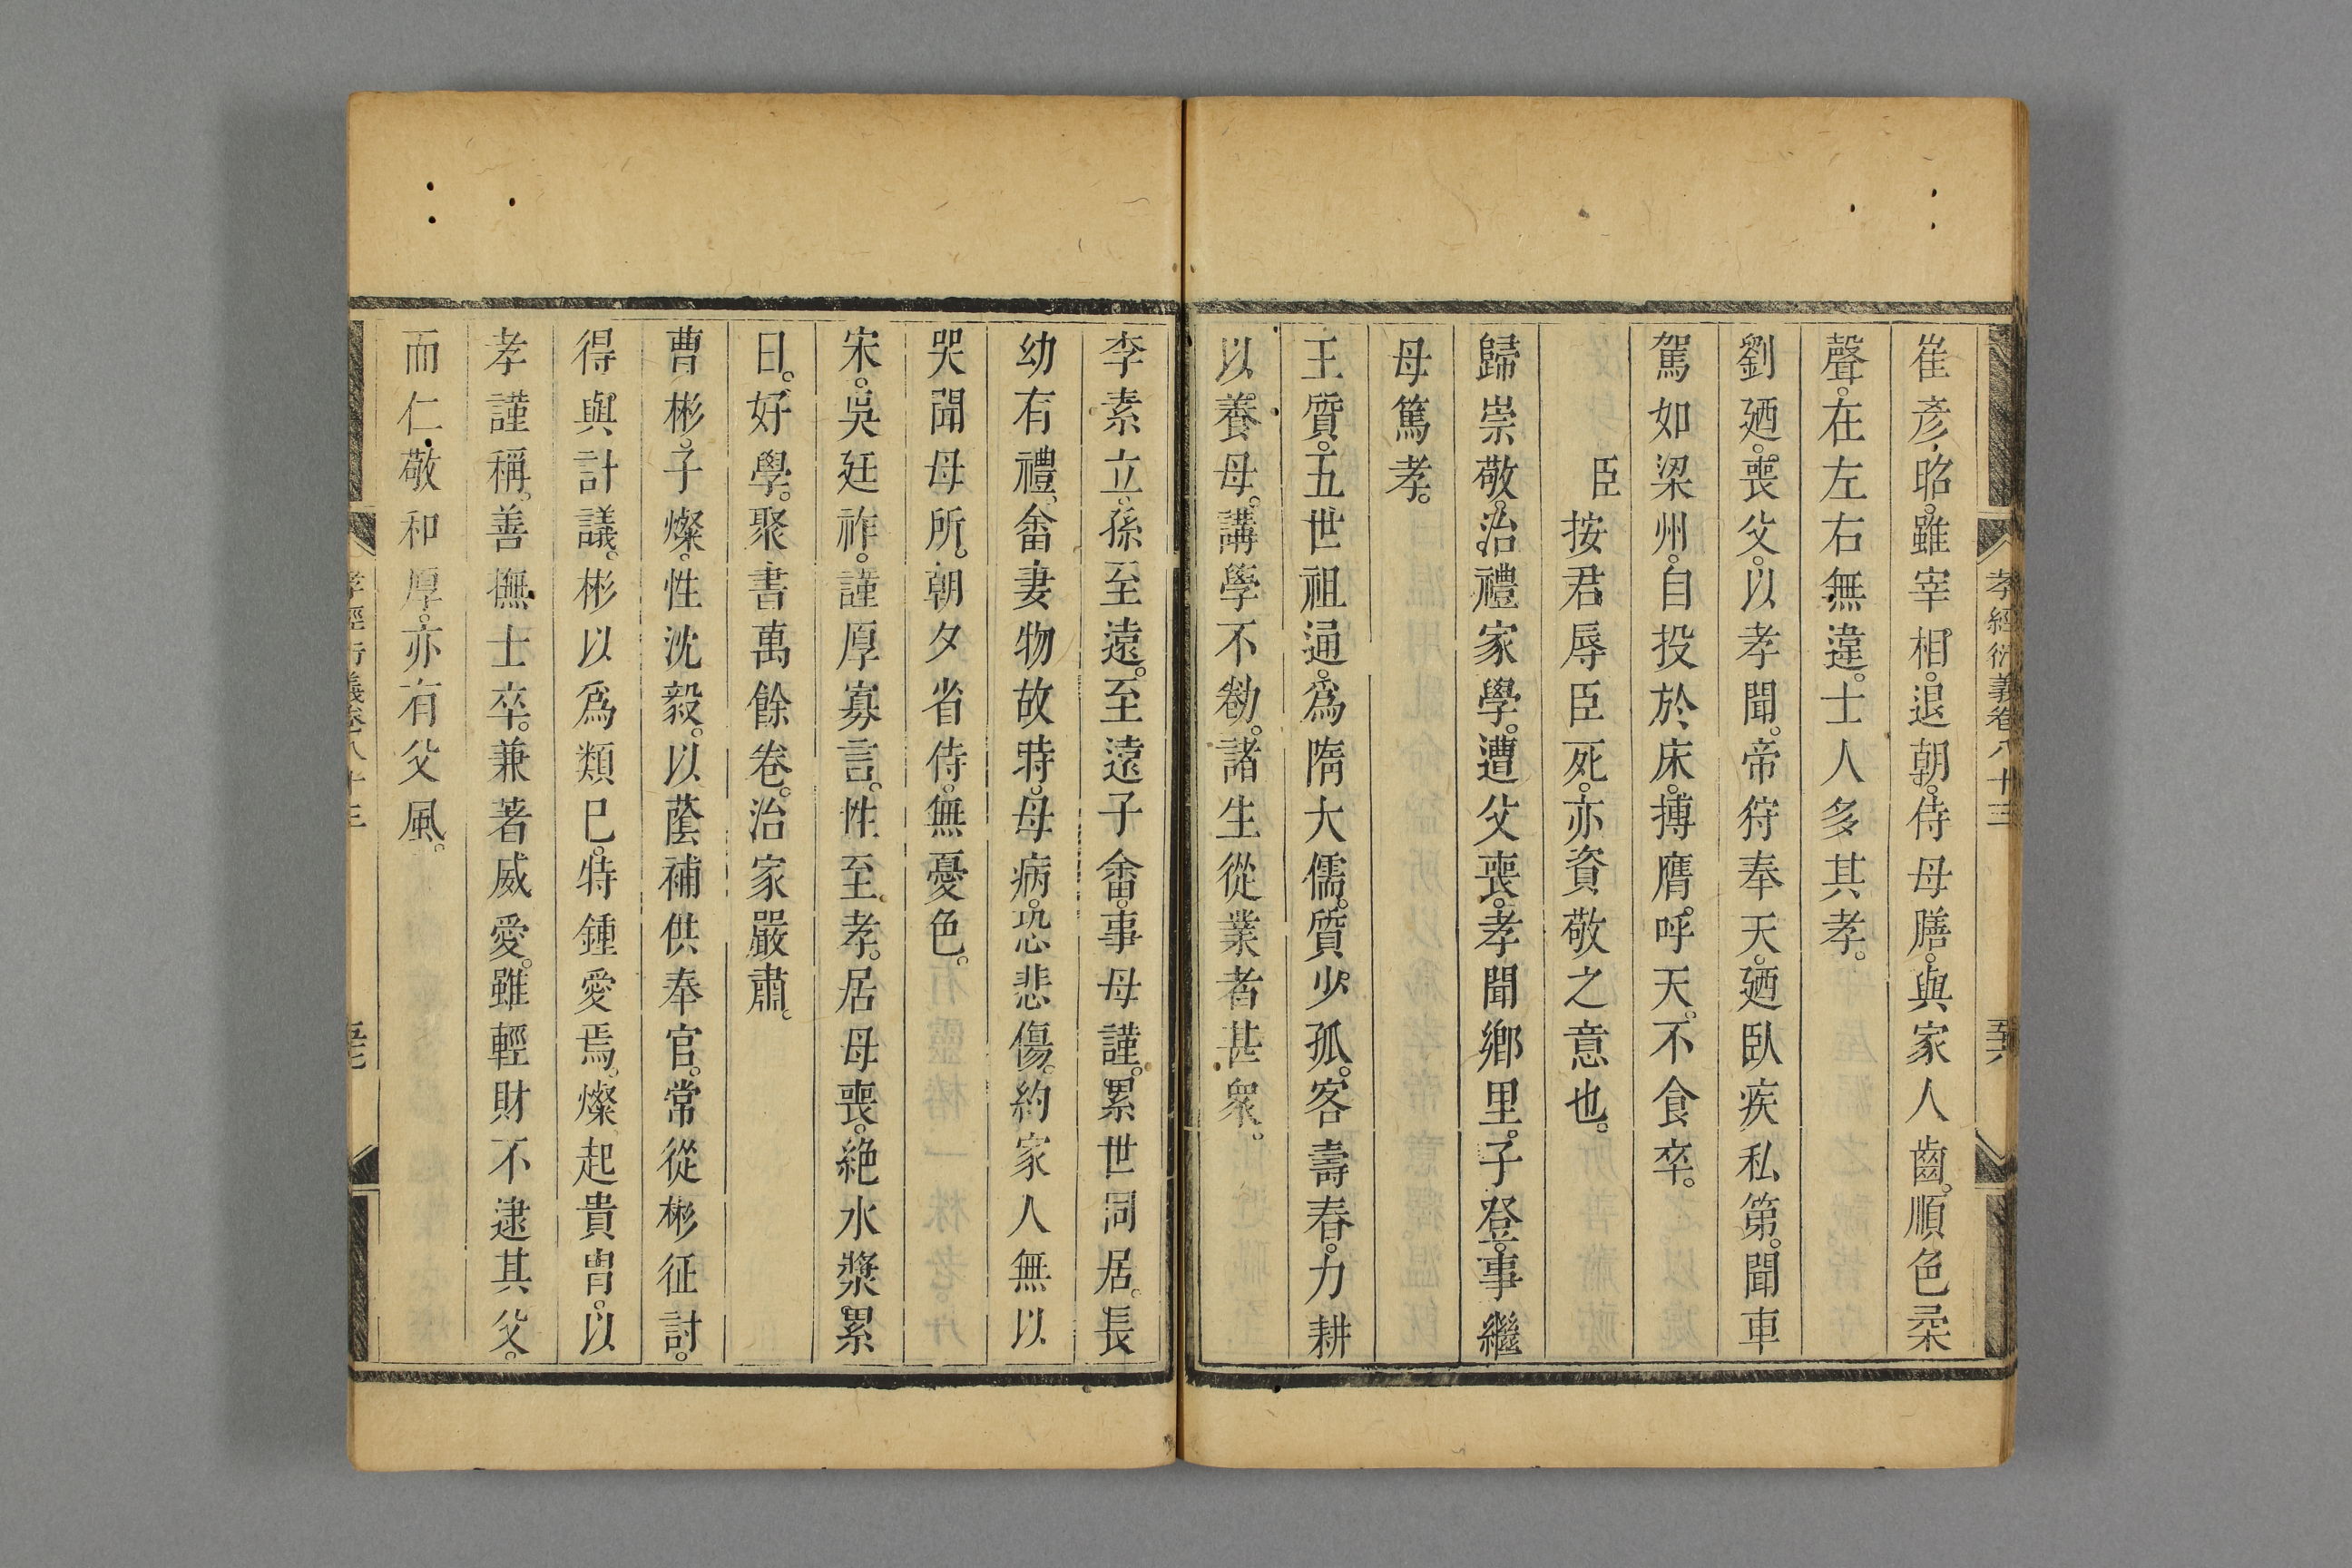 孝經衍義卷八十三 五十六
崔彥昭。雖宰相。退朝。侍母膳。與家人齒。順色柔
聲。在左右無違。士人多其孝。
劉廼。喪父。以孝聞。帝狩奉天。廼臥疾私第。聞車
駕如梁州。自投於床。搏膺。呼天。不食卒。
臣按君辱臣死。亦資敬之意也。
歸崇敬。治禮家學。遭父喪。孝聞鄉里。子登。事繼
母篤孝。
王質。五世祖通。爲隋大儒。質少孤。客壽春。力耕
以養母。講學不勌。諸生從業者甚衆。
李素立。孫至遠。至遠子畬。事母謹。累世同居。長
幼有禮。畬妻物故時。母病。恐悲傷。約家人無以
哭聞母所。朝夕省侍。無憂色。
宋。吳廷祚。謹厚寡言。性至孝。居母喪。絶水漿累
日。好學。聚書萬餘卷。治家嚴肅。
曹彬。子燦。性沈毅。以蔭補供奉官。常從彬征討。
得與計議。彬以爲類巳。特鍾愛焉。燦起貴胄。以
孝謹稱。善撫士卒。兼著威愛。雖輕財不逮其父。
而仁敬和厚。亦有父風。
孝經衍義卷八十三